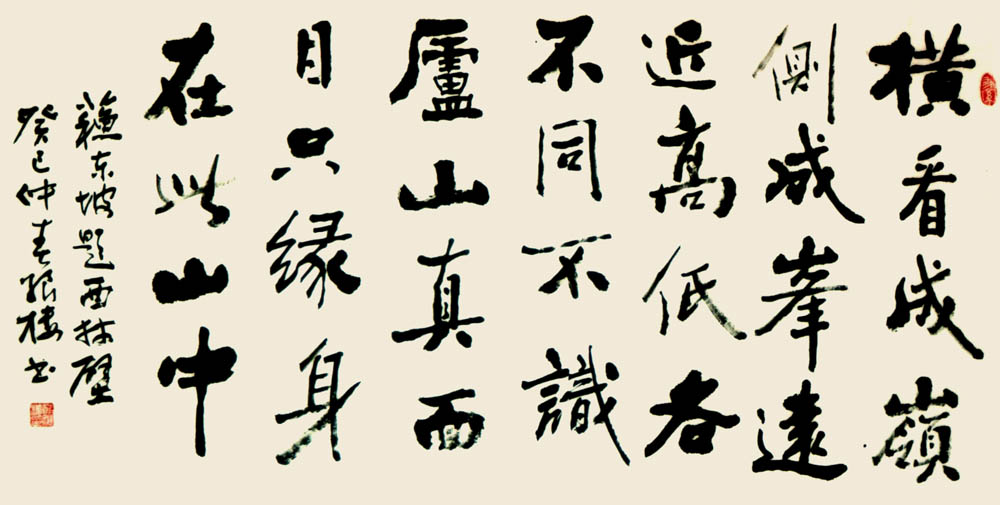 橫看成嶺
側成峯遠
近高低各
不同不識
廬山真面
目只緣身
在此山中
蘇東坡題西林壁
癸巳仲春 书